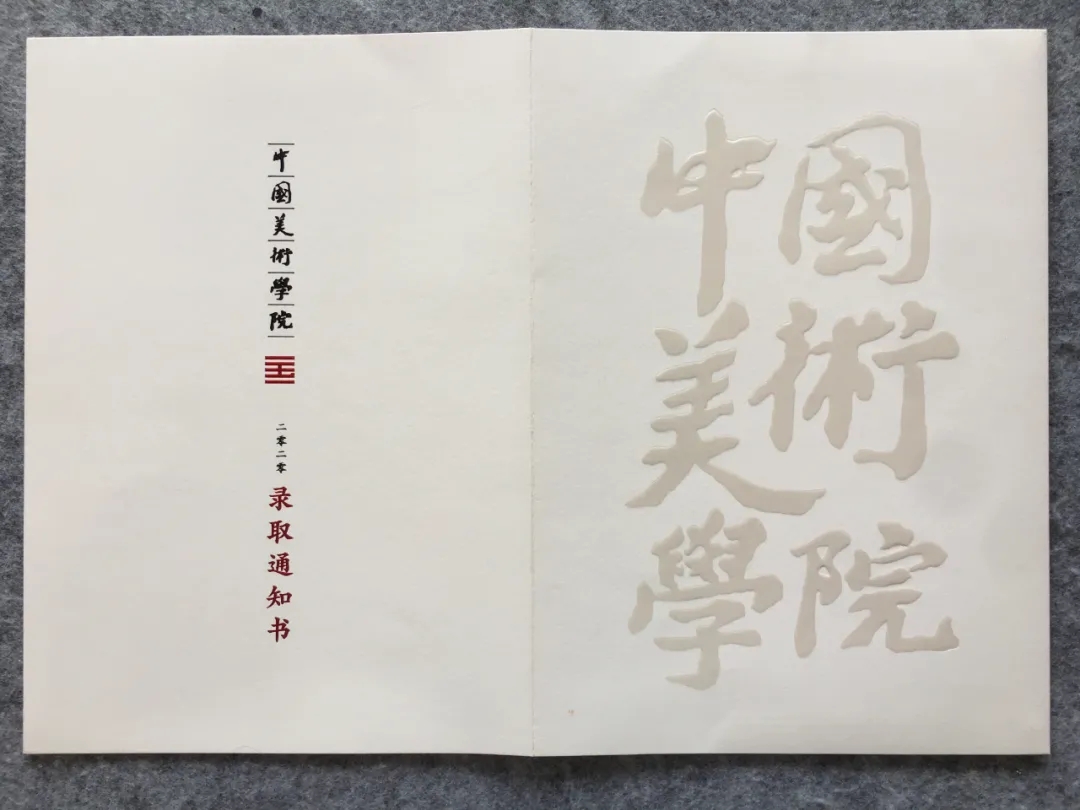 中國美術學院
二零二零
录取通知书
中國
美術
學院